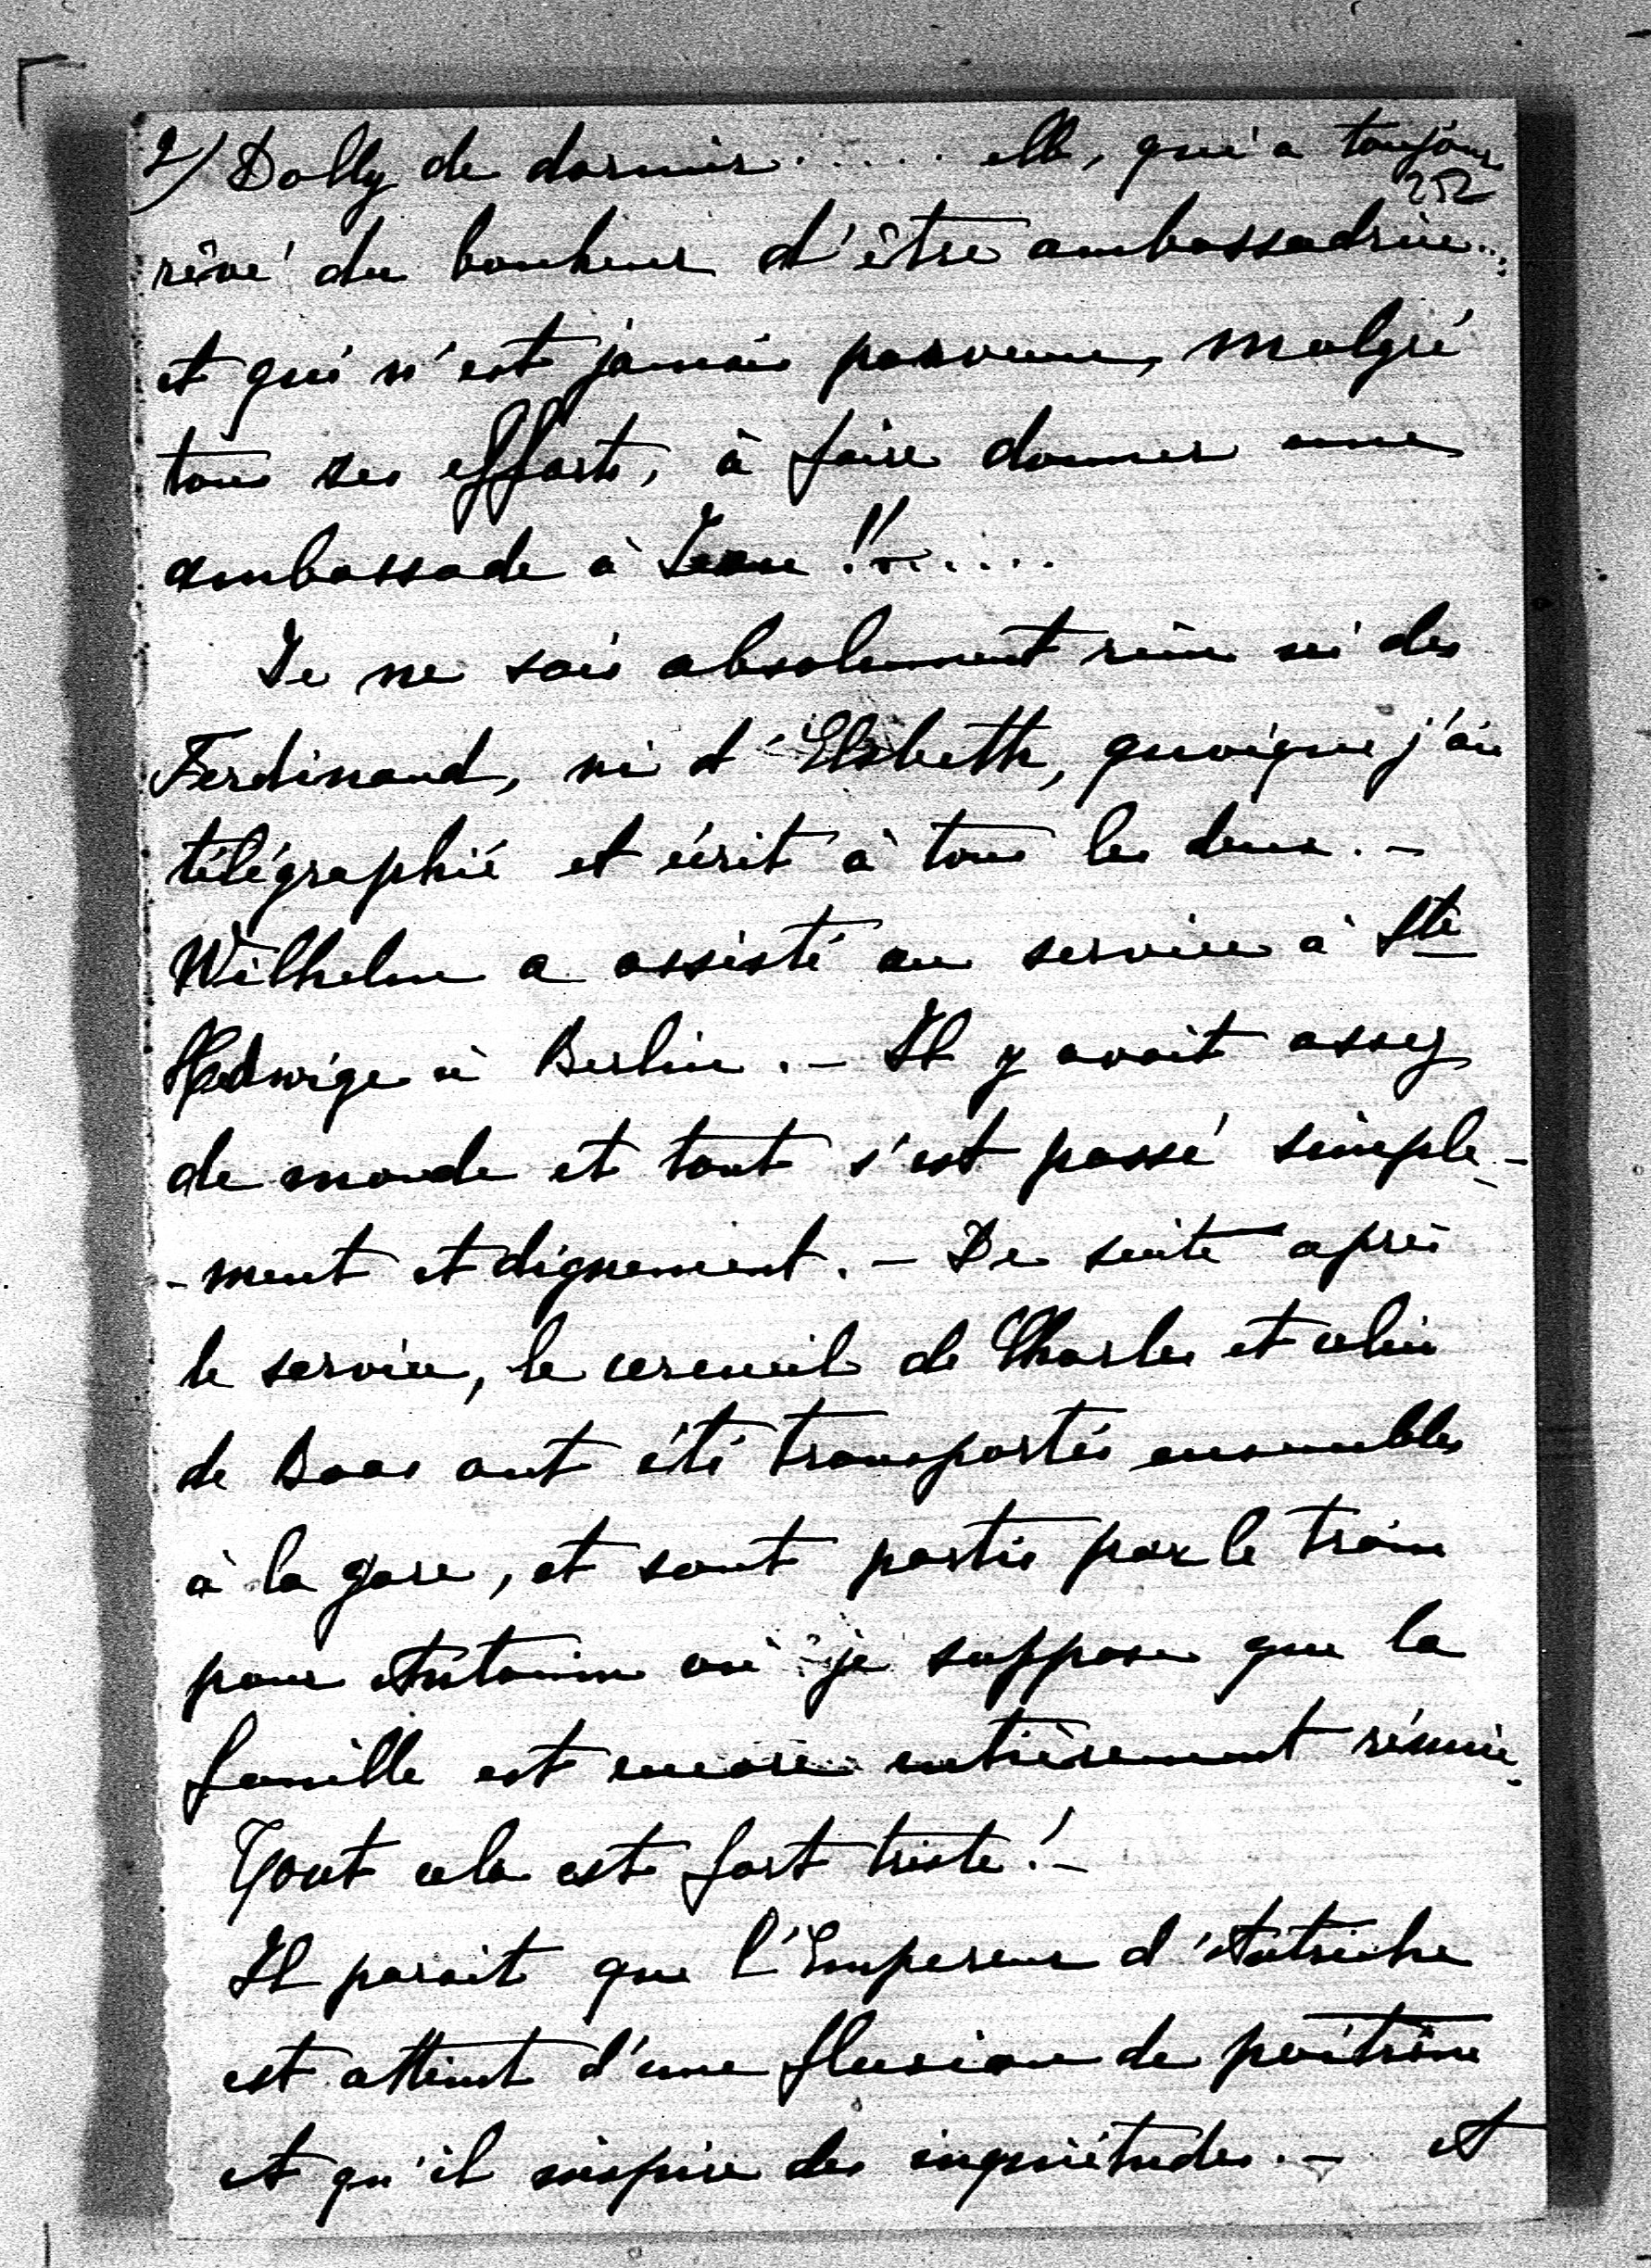 2/ Dolly de dormir ..... elle, qui a toujours
252
rêvé du bonheur d'être ambassadrice...
et qui n'est jamais parvenue, malgré
tous ses efforts, à faire donner une
ambassade à Jean !! .....
Je ne sais absolument rien ni des
Ferdinand, ni d'Elsbeth, quoique j'aie
télégraphié et écrit à tous les deux. -
Wilhelm a assisté au service à Ste
Hedwige à Berlin. - Il y avait assez
de monde et tout s'est passé simple-
-ment et dignement. - De suite après
le service, le cercueil de Charles et celui
de ont été transportés ensembles
à la gare, et sont partis par le train
pour Antonin où je suppose que la
famille est encore entièrement réunie.
Tout cela est fort triste! -
Il parait que l'Empereur d'Autriche
est atteint d'une fluxion de poitrine
et qu'il inspire des inquiétudes. - et